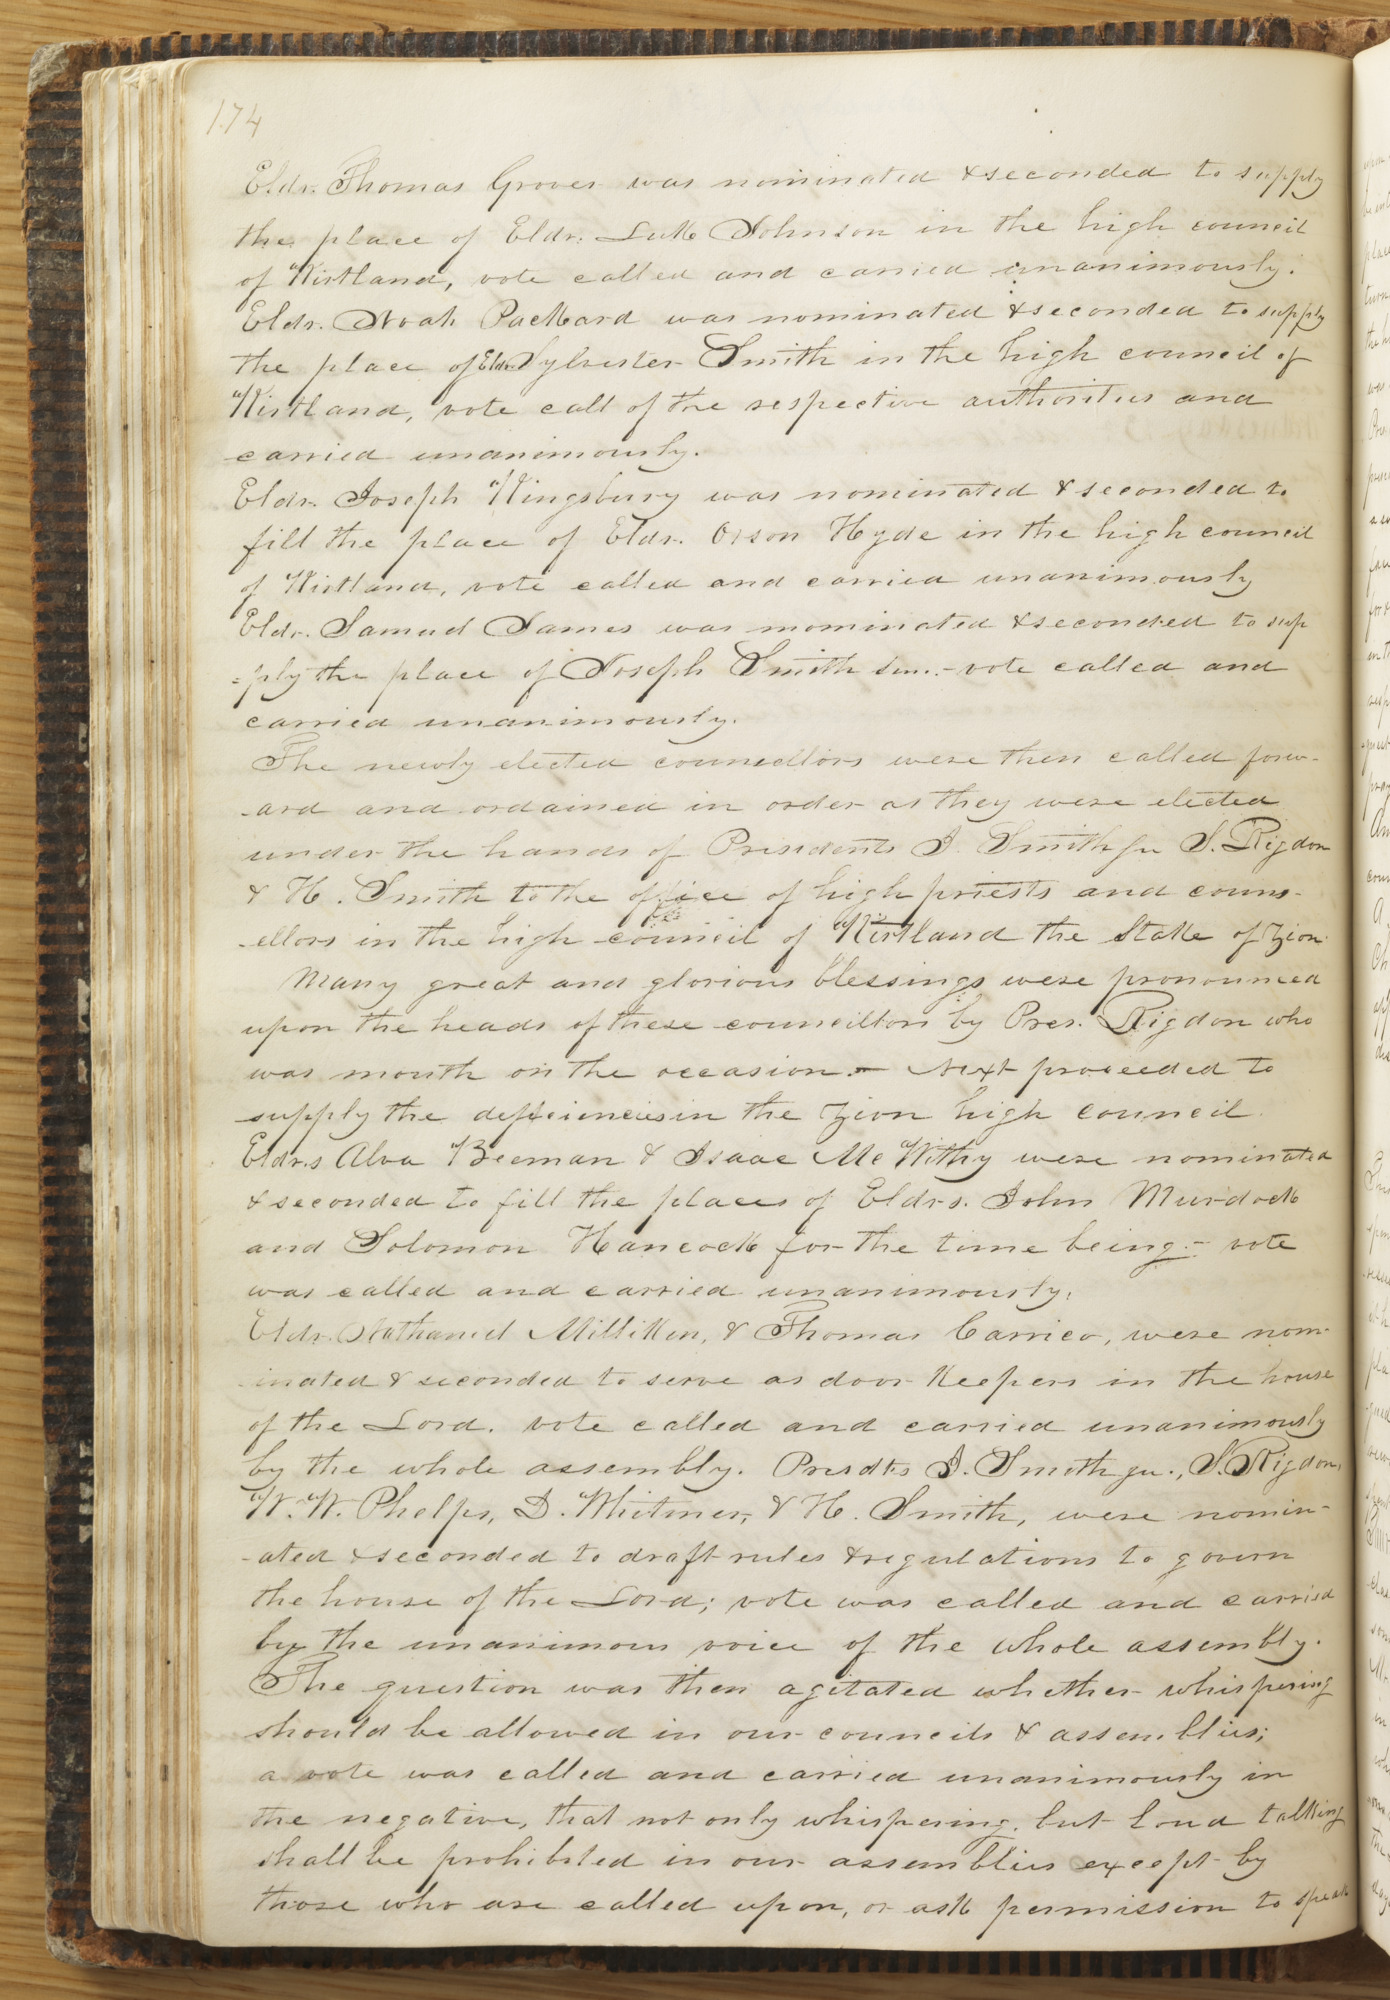 174
Eldr. Thomas Grover was nominated & seconded to supply
the place of Eldr. Luke Johnson in the high council
of Kirtland, vote called and carried unanimously.
Eldr. Noah Packard was nominated & seconded to supply
the place of Eldr. Sylvester Smith in the high council of
Kirtland, vote call of the respective authorities and
carried unanimously.
Eldr. Joseph Kingsbury was nominated & seconded to
fill the place of Eldr. Orson Hyde in the high council
of Kirtland, vote called and carried unanimously
Eldr. Samuel James was nominated & seconded to sup
=ply the place of Joseph Smith sen.- vote called and
carried unanimously.
The newly elected councellors were then called forw-
-ard and ordained in order as they were elected
under the hands of Presidents J. Smith ju S. Rigdon
& H. Smith to the office of high priests and couns-
-ellors in the high council of Kirtland the Stake of Zion
Many great and glorious blessings were pronounced
upon the heads of these councillors by Pres. Rigdon who
was mouth on the occasion.- Next proceeded to
supply the deficiencies in the Zion high council
Eldrs Alva Beeman & Isaac McWithy were nominated
& seconded to fill the places of Eldrs. John Murdock
and Solomon Hancock for the time being.- vote
was called and carried unanimously.
Eldr. Nathaniel Milliken, & Thomas Carrico, were nom-
inated & seconded to serve as door keepers in the house
of the Lord. vote called and carried unanimously
by the whole assembly. Presdts J. Smith ju., S. Rigdon,
W. W. Phelps, D. Whitmer, & H. Smith, were nomin-
-ated & seconded to draft rules & regulations to govern
the house of the Lord; vote was called and carried
by the unanimous voice of the whole assembly.
The question was then agitated whether whispering
should be allowed in our councils & assemblies;
a vote was called and carried unanimously in
the negative, that not only whispering, but loud talking
shall be prohibited in our assemblies except by
those who are called upon, or ask permission to speak